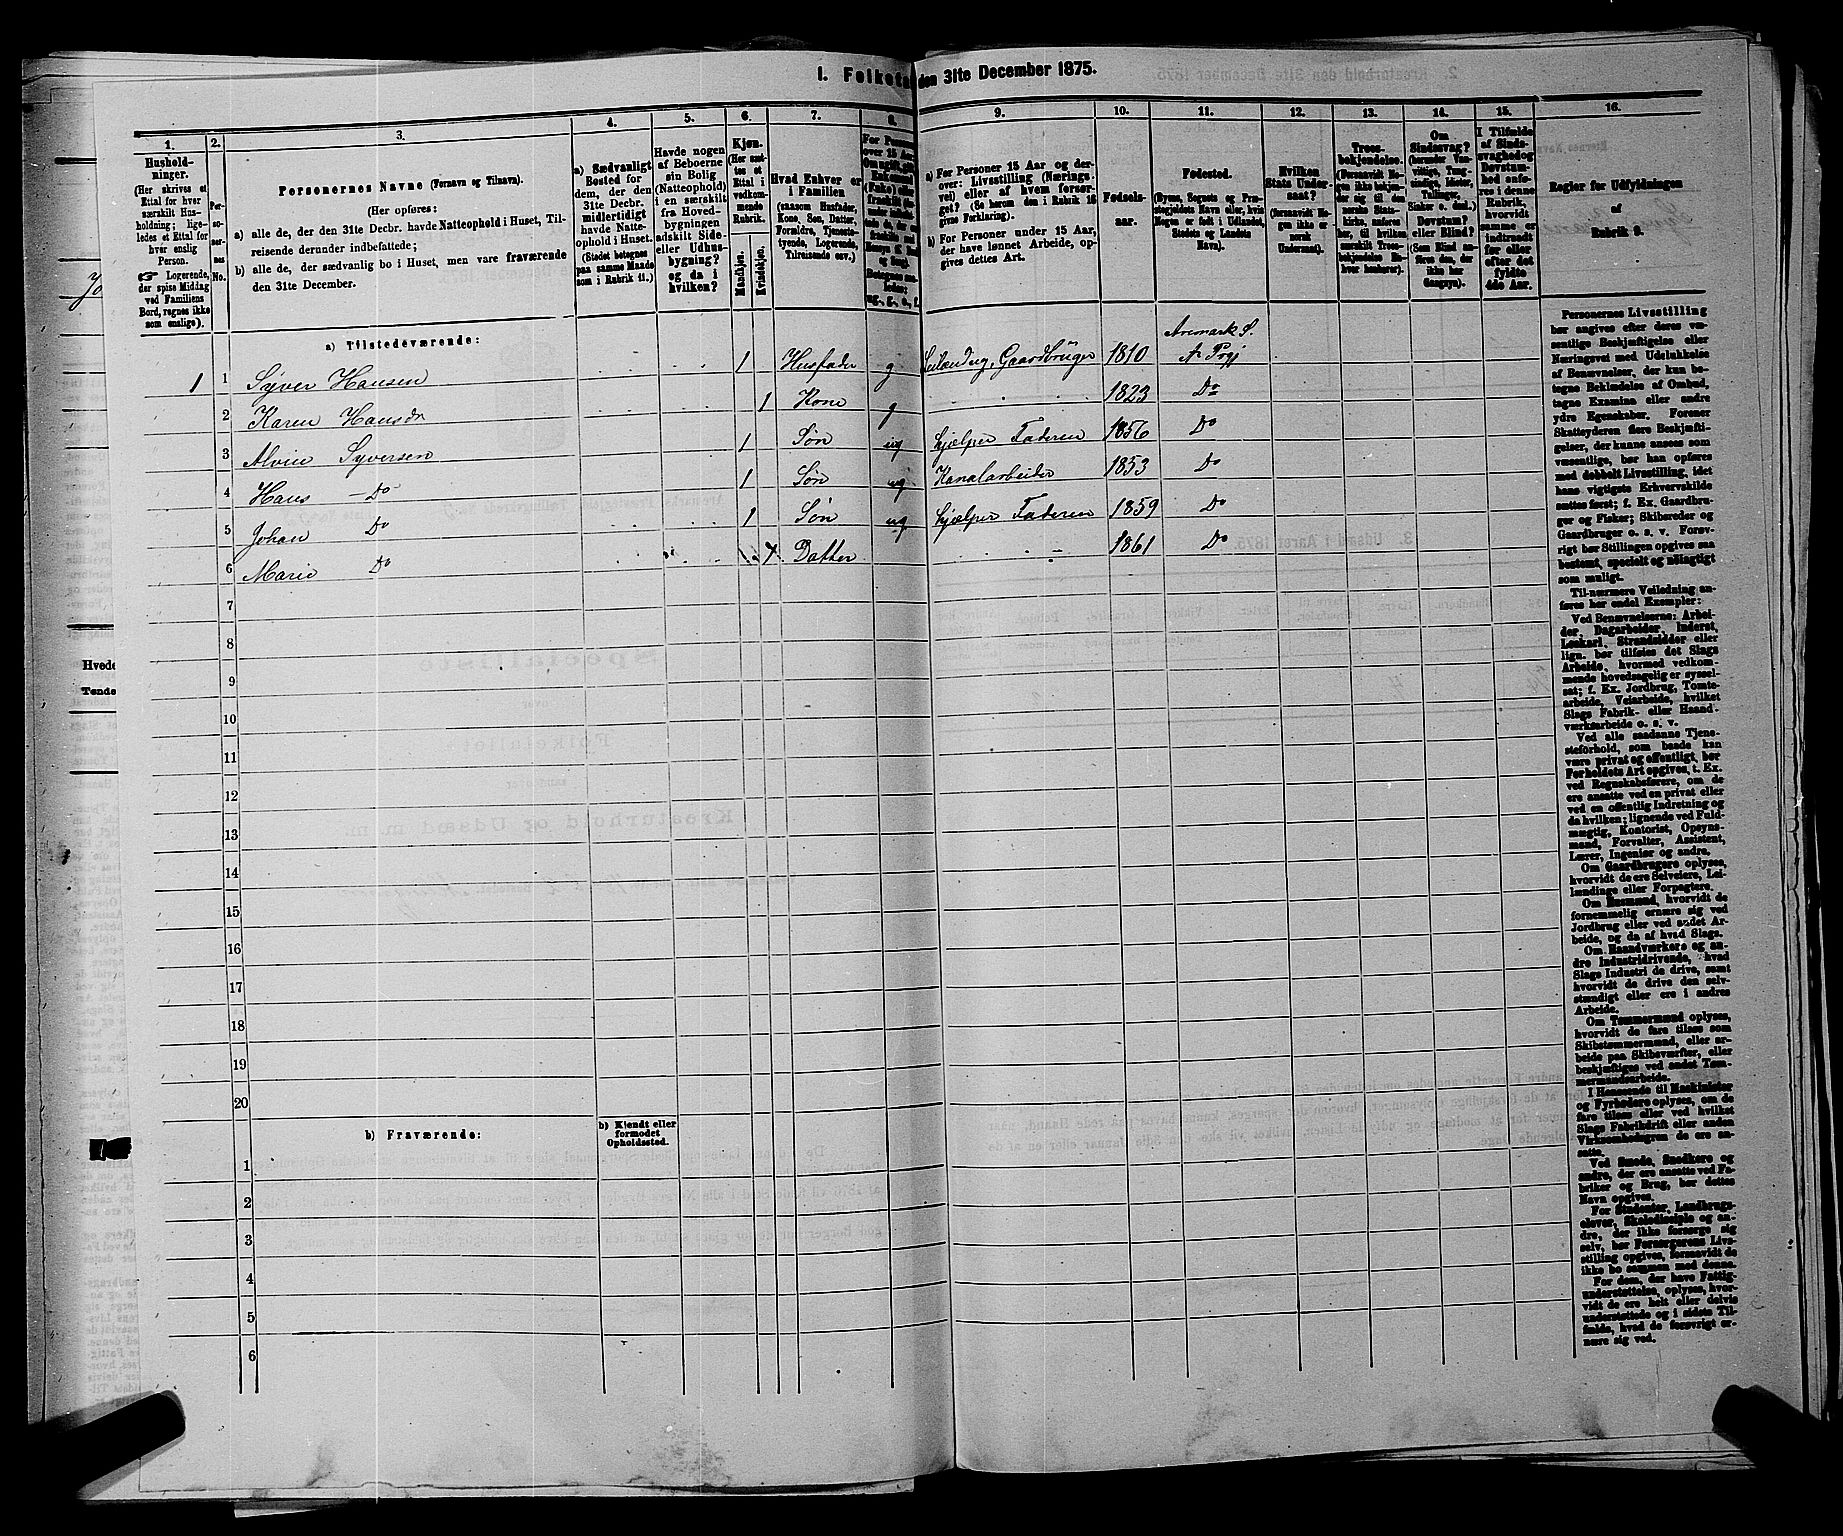 1. Folketal den 31te December 1875.
1.
Hushold-
ninger.
(Her skrives et
Ettal for hver
særskilt Hus-
holdning; lige-
ledes et Ettal for
hver enslig
Person.
Logerende,
der spise Middag
ved Familiens
Bord, regnes ikke
som enslige).
2.
Per-
so-
ner-
nes
No.
3.
Personernes Navne (Fornavn og Tilnavn).
(Her opføres:
a) alle de, der den 31te Decbr. havde Natteophold i Huset, Til-
reisende derunder indbefattede;
b) alle de, der sædvanlig bo i Huset, men vare fraværende
den 31te December.
4.
a) Sædvanligt
Bosted for
dem, der den
31te Decbr.
midlertidigt
havde Natte-
ophold i Huset.
(Stedet betegnes
paa samme Maade
som i Rubrik 11.)
5.
Havde nogen
af Beboerne
sin Bolig
(Natteophold)
i en særskilt
fra Hoved-
bygningen
adskilt Side-
eller Udhus-
bygning?
og da i
hvilken?
6.
Kjøn.
(Her sæt-
tes et
Ettal i
vedkom-
mende
Rubrik.
Mandkjøn.
Kvindekjøn.
7.
Hvad Enhver er
i Familien
(saasom Husfader,
Kone, Søn, Datter,
Forældre, Tjeneste-
tyende, Logerende,
Tilreisende osv.)
8.
9.
a) For Personer 15 Aar og der-
over: Livsstilling (Nærings-
vei) eller af hvem forsør-
get? (Se herom den i Rubrik 16
givne Forklaring).
b) For Personer under 15 Aar,
der have lønnet Arbeide, op-
gives dettes Art.
10.
Fødsels-
aar.
11.
Fødested.
(Byens, Sognets og Præ-
stegjeldets Navn eller, hvis
Nogen er født i Udlandet,
Stedets og Landets
Navn).
12.
Hvilken
Stats Under-
saat?
(forsaavidt No-
gen ikke er
norsk
Undersaat).
13.
Troes-
bekjendelse.
(Forsaavidt No-
gen ikke bekjen-
der sig til den
norske Stats-
kirke, anføres
her, til hvilken
særskilt Troes-
bekjendelse En-
hver henhører).
14.
Om
Sindssvag?
(herunder Van-
vittige, Tung-
sindige, Idioter,
Tullinger,
Sinker o. desl.)
Døvstum?
eller Blind?
(Som Blind an-
føres den, der
ikke har
Gangsyn).
15.
I Tilfælde
af Sinds-
svaghed og
Døvstum-
hed anfø-
res i denne
Rubrik,
hvorvidt
samme er
indtraadt
før eller
efter det
fyldte
4de Aar.
16.
Regler for Udfyldningen
af
Rubrik 9.
a) Tilstedeværende:
1 1 Syver Hansen 1 Husfader g Gaardbruger 1810 Aremark S. A Prgj
2 Karen Hansdr 1 Kone g 1823 Do
3 Alvin Syversen 1 Søn ug hjælper Faderen 1856 Do
4 Hans Do 1 Søn ug Kanalarbeider 1853 Do
5 Johan Do 1 Søn ug hjælper Faderen 1859 Do
6 Marie Do Datter 1861 Do
7
8
9
10
11
12
13
14
15
16
17
18
19
20
b) Fraværende:
b) Kjendt eller
formodet
Opholdssted.
1
2
3
4
5
6
Personernes Livsstilling
bør angives efter deres væ-
sentlige Beskjæftigelse eller
Næringsvei med Udelukkelse
af Benævnelser, der kun be-
tegne Beklædelse af Ombud,
tagne Examina eller andre
ydre Egenskaber. Forener
Skatteyderen flere Beskjæfti-
gelser, der kunne ansees som
væsentlige, bør han opføres
med dobbelt Livsstilling, idet
hans vigtigste Erhvervskilde
sættes først; f. Ex. Gaardbru-
ger og Fisker; Skibsreder og
Gaardbruger o. s. v. Forøv-
rigt bør Stillingen opgives saa
bestemt, specielt og nøiagtigt
som muligt.
Til nærmere Veiledning an-
føres her endel Exempler:
Ved Benævnelserne: Arbei-
der, Dagarbeider, Inderst,
Løskarl, Strandsidder eller
lign. bør tilføies det Slags
Arbeide, hvormed vedkom-
mende hovedsagelig er syssel-
sat; f. Ex. Jordbrug, Tomte-
arbeide, Veiarbeide, hvilket
Slags Fabrik- eller Haand-
værksarbeide o. s. v.
Ved alle saadanne Tjene-
steforhold, som baade kan
være privat og offentligt, bør
Forholdets Art opgives, t. Ex.
ved Regnskabsførere, om de
ere ansatte ved en privat eller
ved en offentlig Indretning og
da hvilken; lignende ved Fuld-
mægtig, Kontorist, Opsyns-
mand, Forvalter, Assistent,
Lærer, Ingeniør og andre.
Om Gaardbrugere oplyses,
hvorvidt de ere Selveiere, Lei-
lændinge eller Forpagtere.
Om Husmænd, hvorvidt de
fornemmelig ernære sig ved
Jordbrug eller ved andet Ar-
beide, og da af hvad Slags.
Om Haandværkere og an-
dre Industridrivende, hvad
Slags Industri de drive, samt
hvorvidt de drive den selv-
stændigt eller ere i andres
Arbeide.
Om Tømmermænd oplyses,
hvorvidt de fare tilsøs som
Skibstømmermænd, eller ar-
beide paa Skibsværfter, eller
beskjæftiges ved andet Tøm-
mermandsarbeide.
I Henseende til Maskinister
og Fyrbødere oplyses, om de
fare tilsøs eller ved hvilket
Slags Fabrikdrift eller anden
Virksomhedsgren de ere an-
satte.
Ved Smede, Snedkere og
andre, der ere ansatte ved Fa-
briker og Brug, bør dettes
Navn opgives.
For Studenter, Landbrugs-
elever, Skoledisciple og an-
dre, der ikke forsørge sig
selv, bør Forsørgerens Livs-
stilling opgives, forsaavidt de
ikke bo sammen med denne.
For dem, der have Fattig-
understøttelse, oplyses, hvor-
vidt de ere helt eller delvis
understøttede og i sidste Til-
fælde, hvad de forøvrigt er-
nære sig ved.
Hvede
Tønde